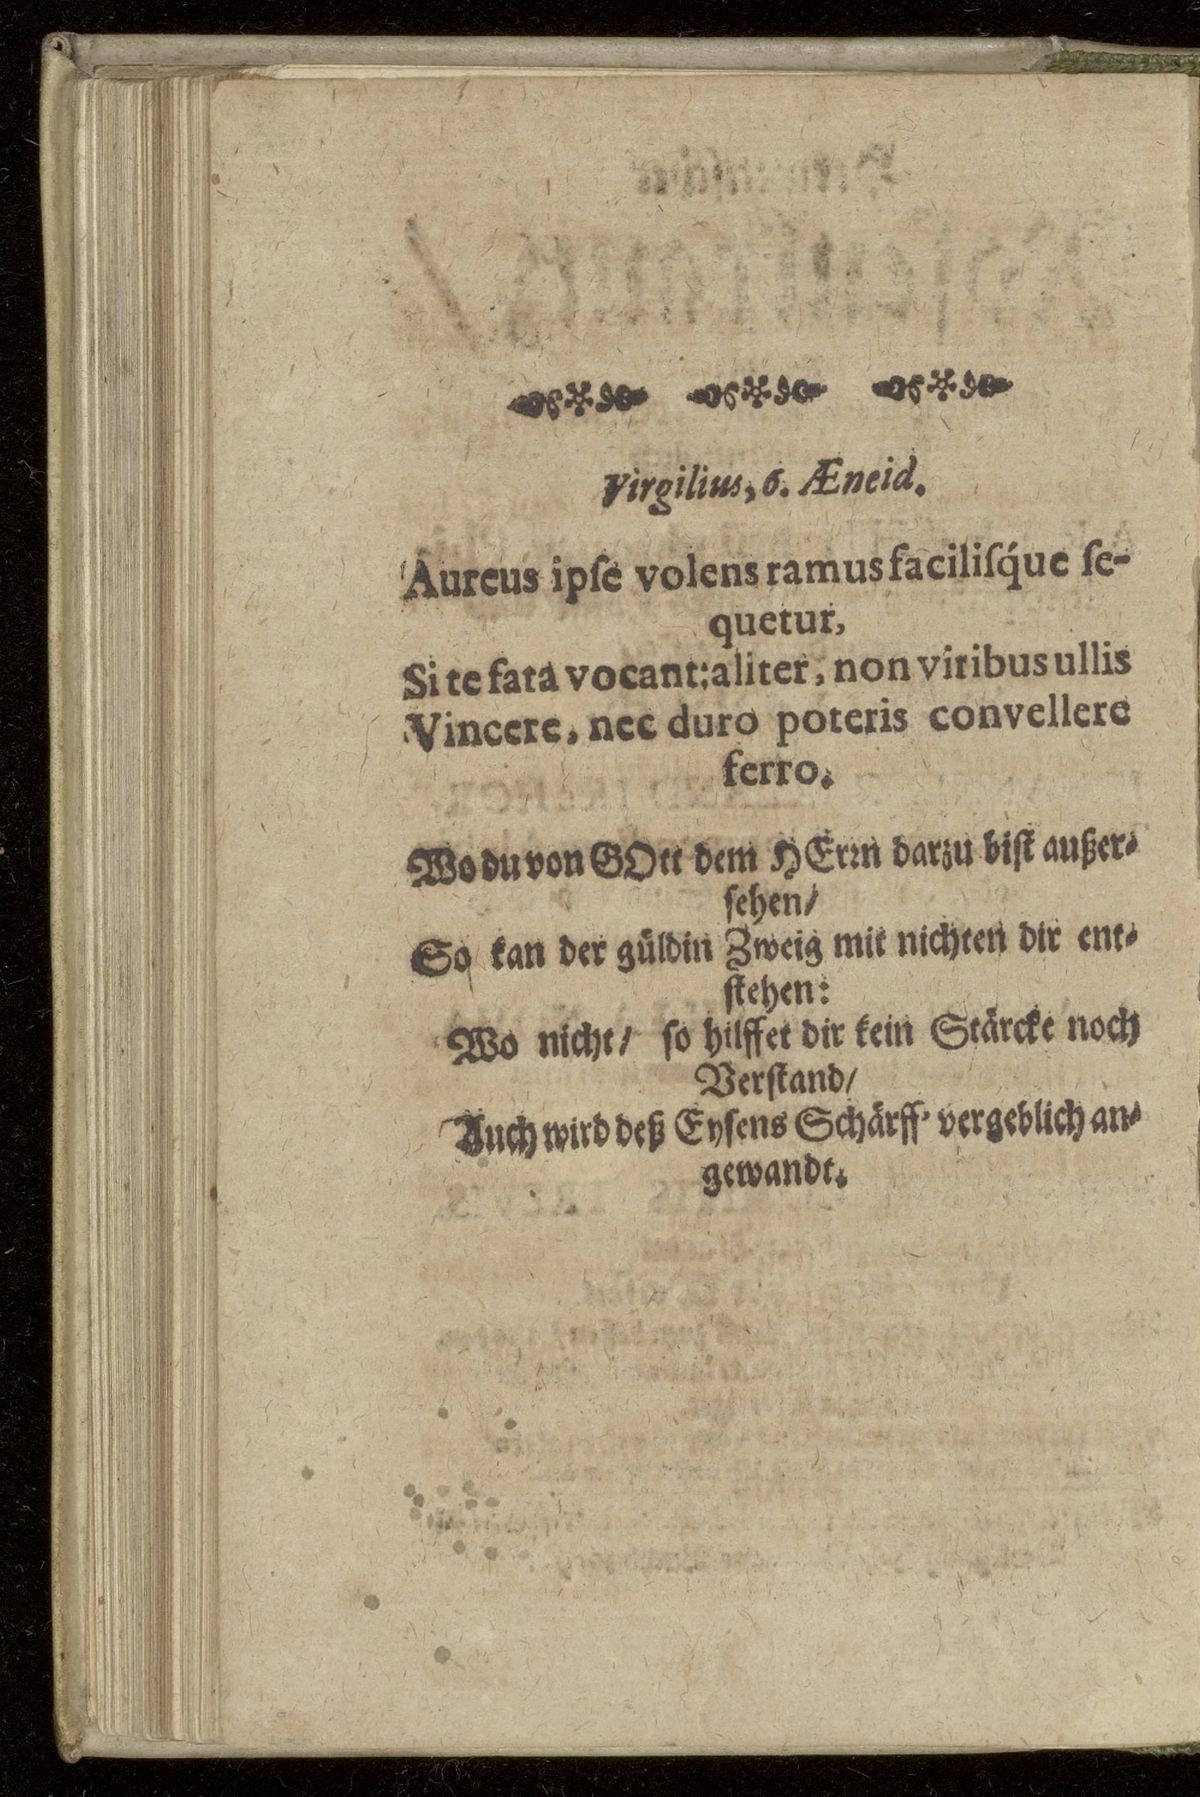 Virgilius, 6. Æneid.
Aureus ipſe volens ramus faciliſq́ue ſe-
quetur,
Si te fata vocant: aliter, non viribus ullis
Vincere, nec duro poteris convellere
ferro.
Wo du von GOtt dem HErꝛn darzu biſt außer-
ſehen/
So kan der güldin Zweig mit nichten dir ent-
ſtehen:
Wo nicht/ ſo hilffet dir kein Stärcke noch
Verſtand/
Auch wird deß Eyſens Schärff’ vergeblich an-
gewandt.